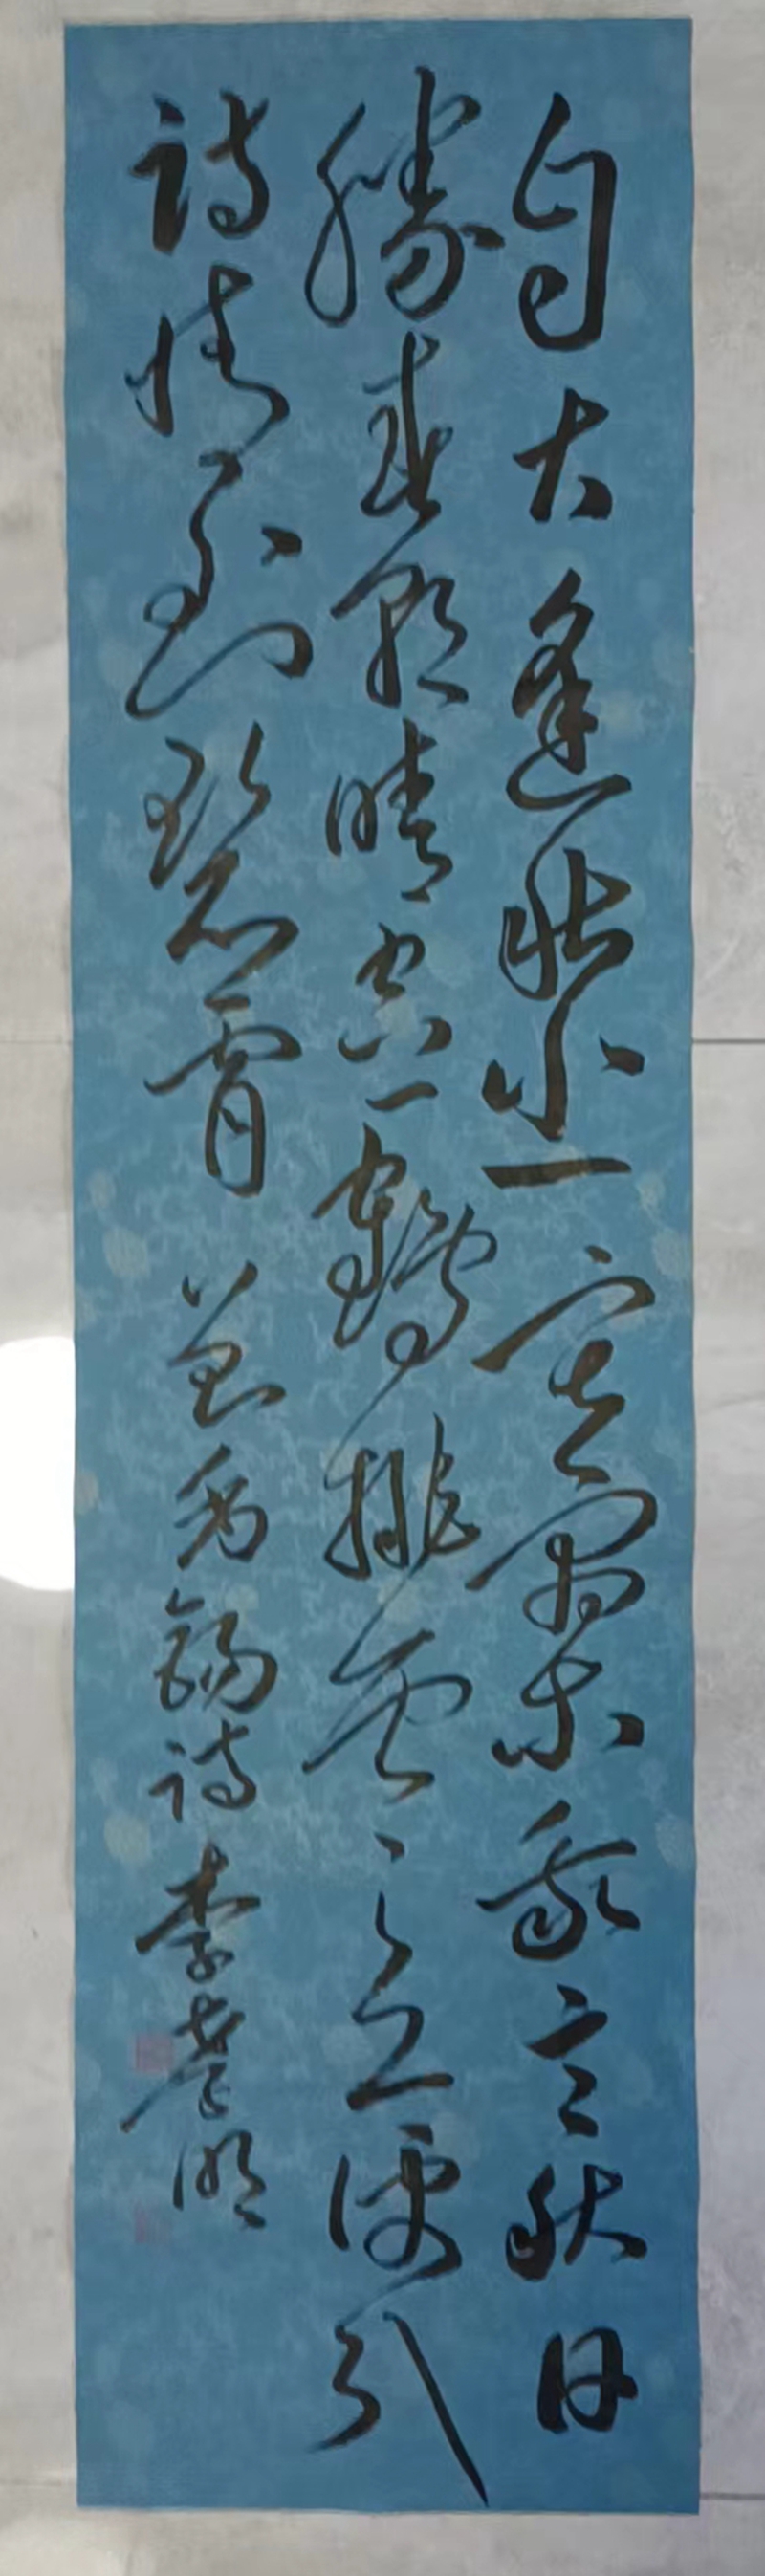 自古逢秋悲寂寥我言秋日
勝春朝晴空一鶴排雲上便引
詩情到碧霄 劉禹錫詩 李孝明